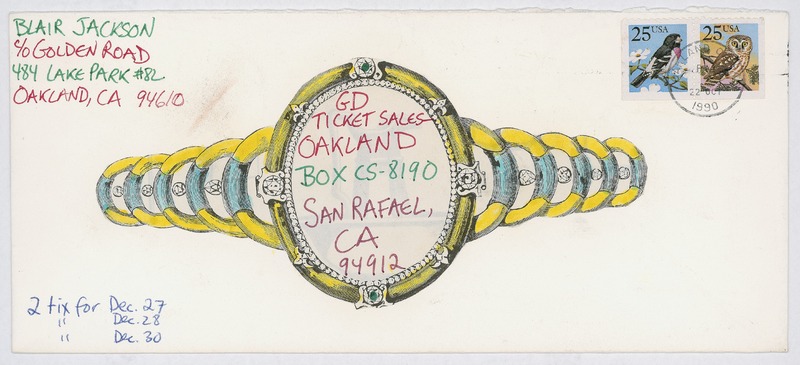 BLAIR JACKSON
c/o GOLDEN ROAD
484 LAKE PARK #82
OAKLAND, CA 94610
25 USA
25 USA
22 OCT
1990
GD
TICKET SALES-
OAKLAND
BOX CS-8190
SAN RAFAEL,
CA
94912
2 tix for Dec. 27
" Dec. 28
" Dec. 30